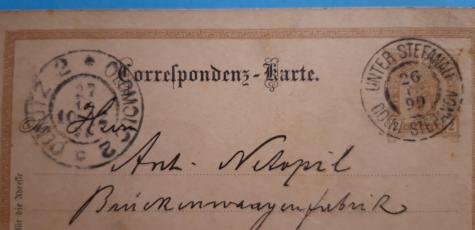 Correspondenz-Karte.
OLMÜTZ 2 * OLOMOUC 2
27
C
UNTER STEFANAU
26
99
DOLNÍ STEPANOV
Herrn
Ant. Netopil
Brückenwaagenfabrik
für die Adresse